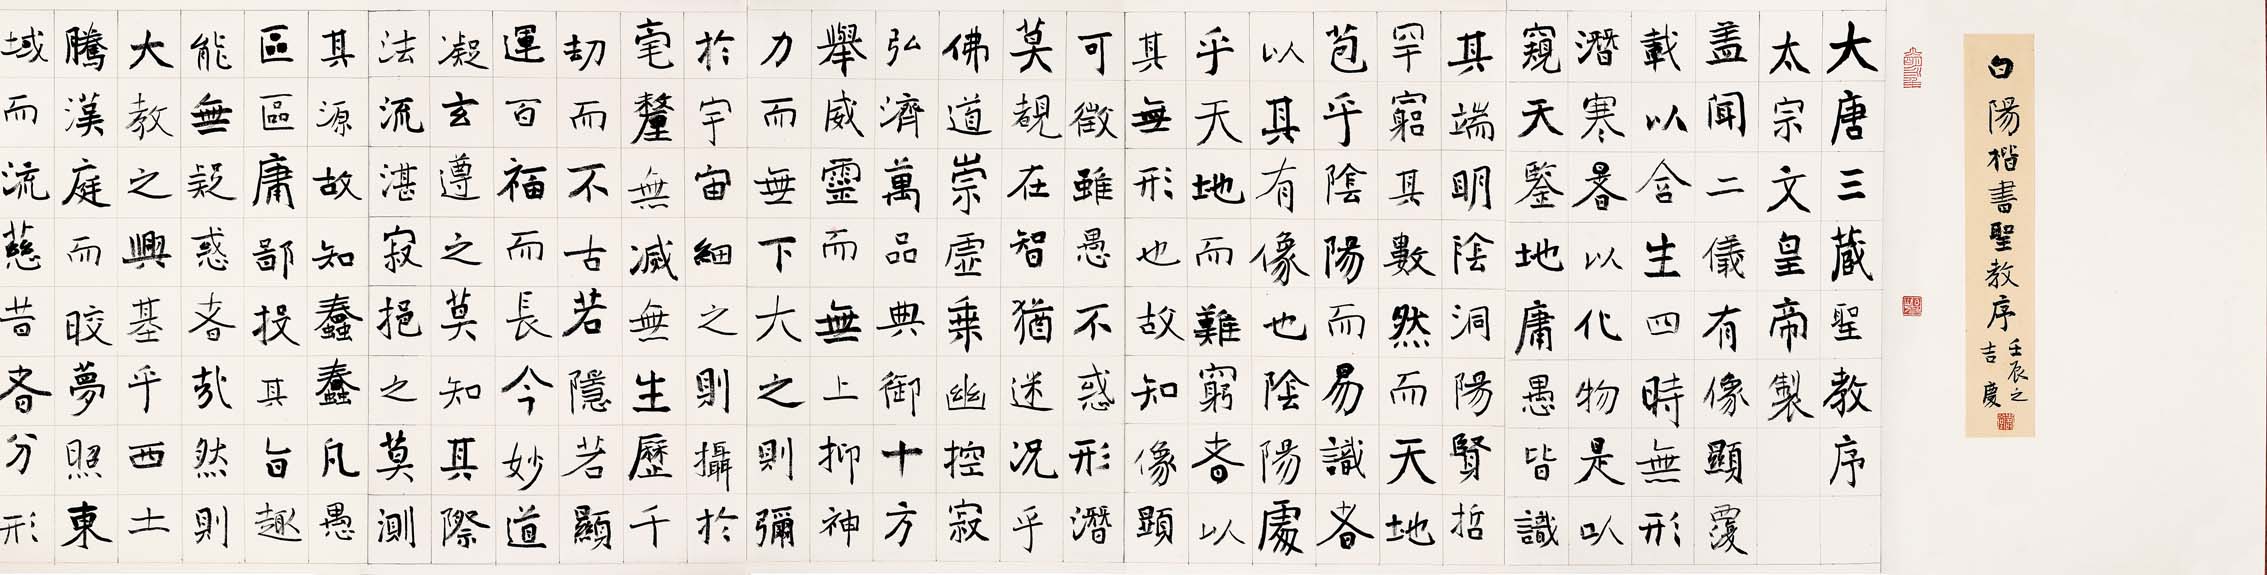 白陽楷書聖教序
壬辰之
吉慶
大唐三藏聖教序
太宗文皇帝製
盖闻二儀有像顯覆
載以含生四時無形
潛寒暑以化物是以
窺天鑒地庸愚皆識
其端明陰洞陽賢哲
罕窮其數然而天地
苞乎陰陽而易識者
以其有像也陰陽處
乎天地而難窮者以
其無形也故知像顯
可徵雖愚不惑形潛
莫覩在智猶迷况乎
佛道崇虛乗幽控寂
弘濟萬品典御十方
舉威靈而無上抑神
力而無下大之則彌
於宇宙細之則攝於
毫釐無滅無生歷千
劫而不古若隱若顯
運百福而長今妙道
凝玄遵之莫知其際
法流湛寂挹之莫測
其源故知蠢蠢凡愚
區區庸鄙投其旨趣
能無疑惑者哉然則
大教之興基乎西土
騰漢庭而皎夢照東
域而流慈昔者分形